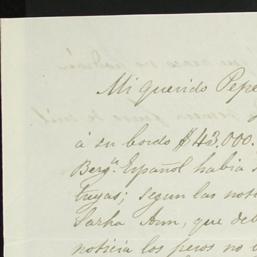 Mi querido Pepe
á su bordo $43.000.
Berg.ⁿ Español habia
tuyas; segun las noti
Sarha Ann, que de
noticia los pesos no